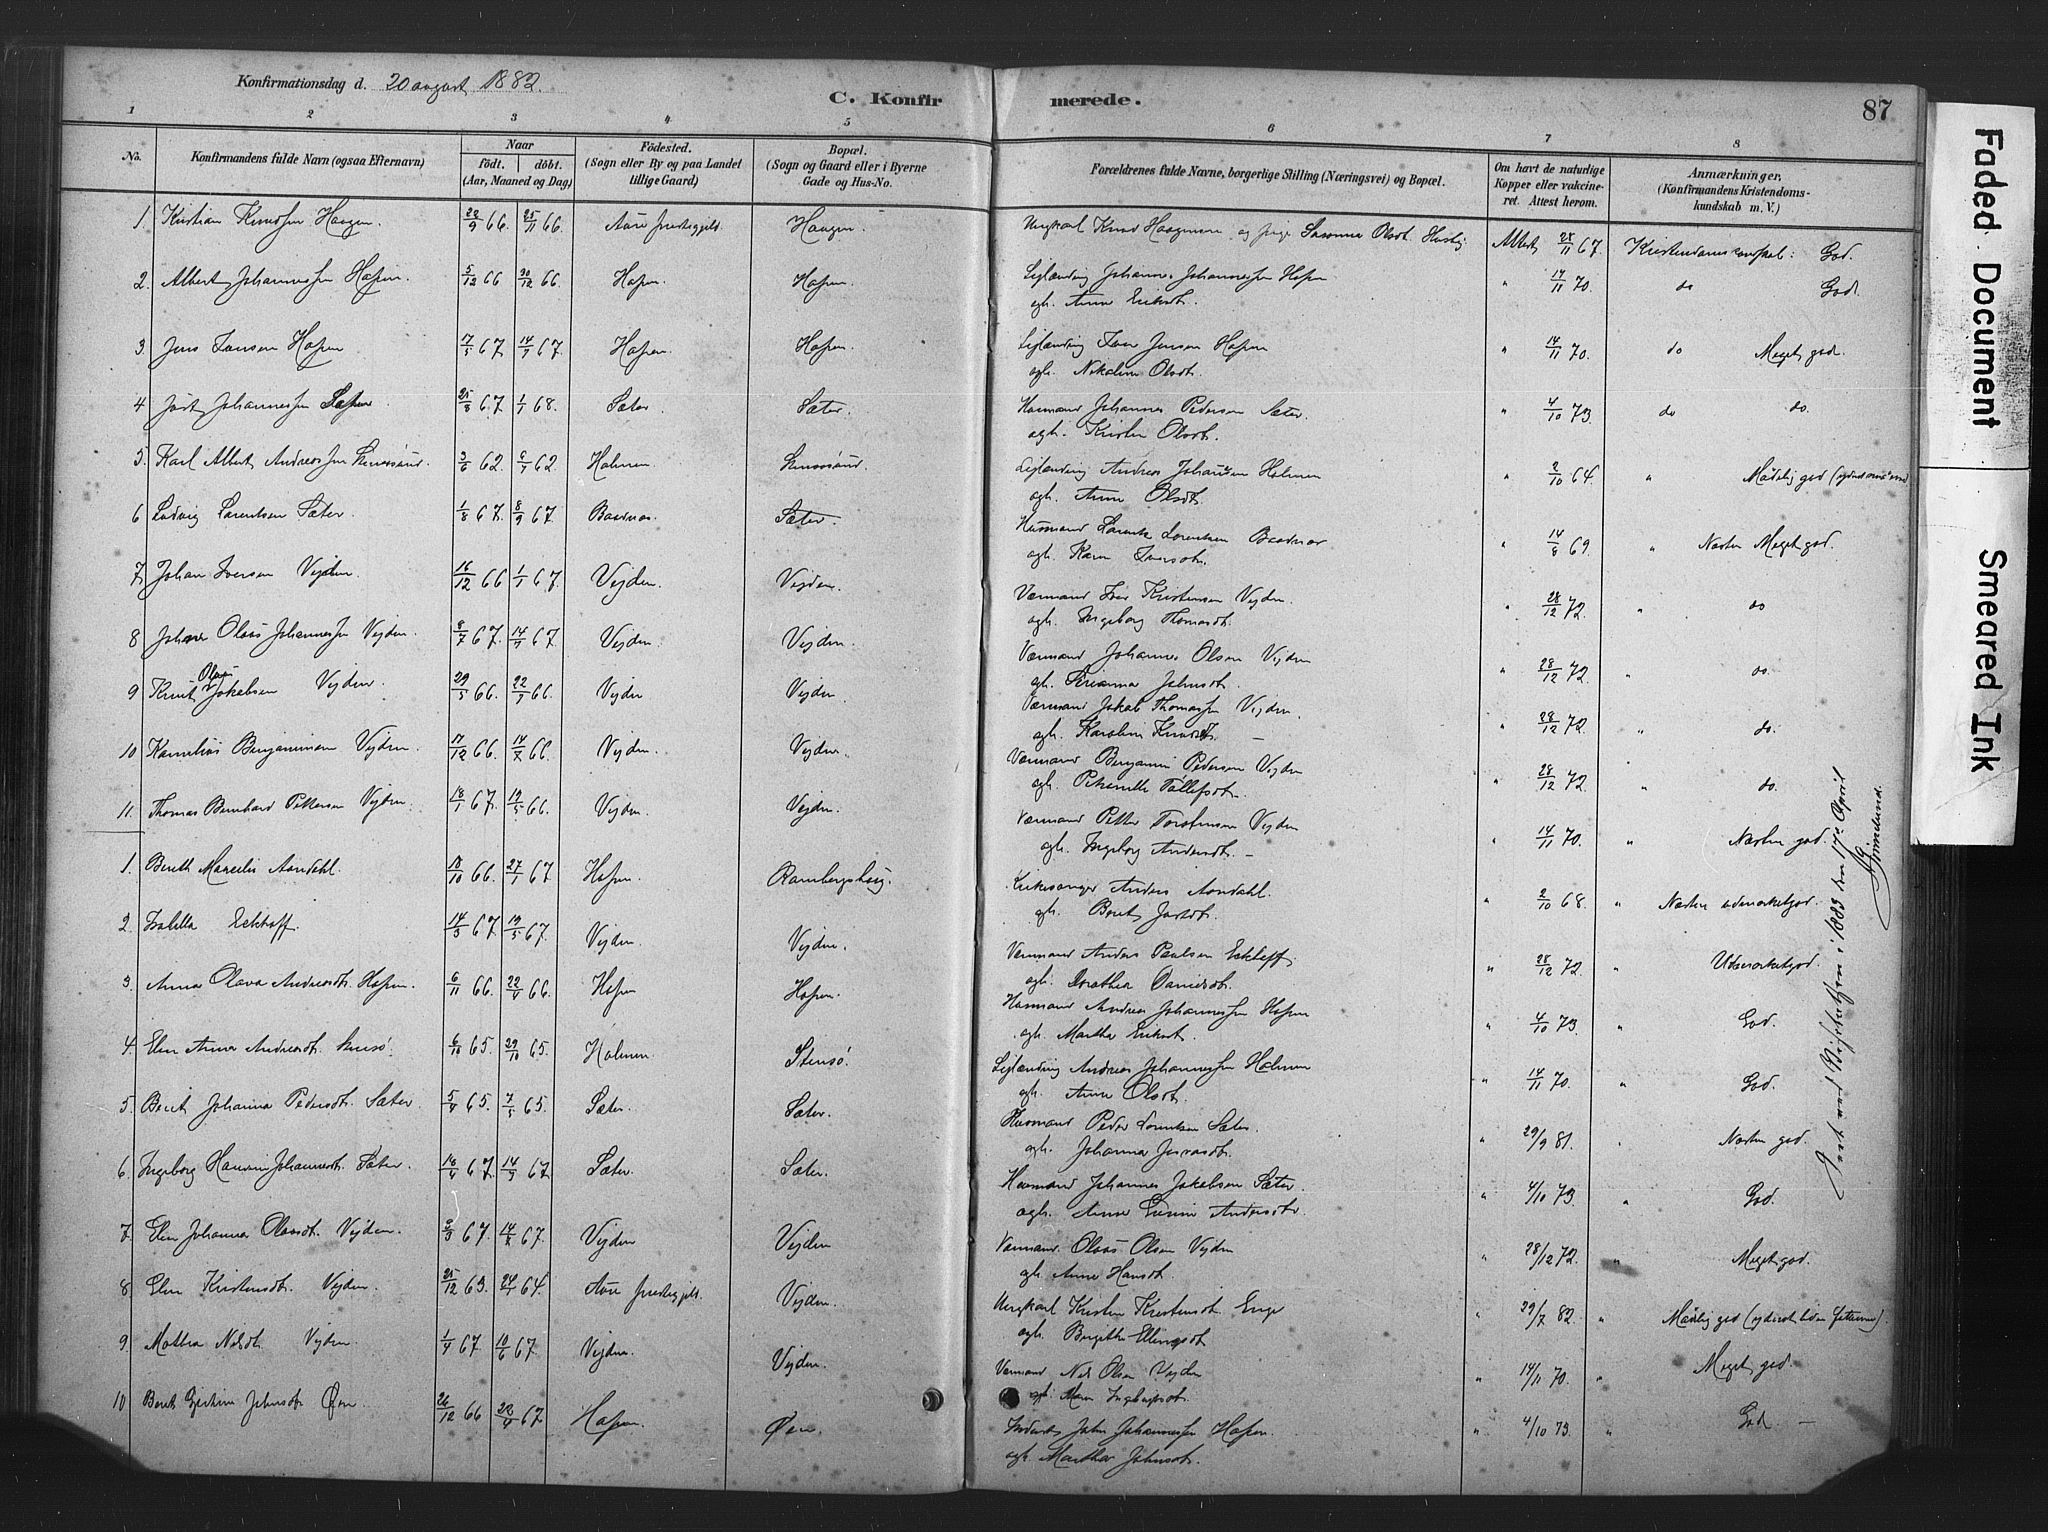 Konfirmationsdag d. 20 august 1882.
C. Konfirmerede. 87
1 2 3 4 5 6 7 8
No. Konfirmandens fulde Navn (ogsaa Efternavn) Naar født. døbt. (Aar, Maaned og Dag) Fødested. (Sogn eller By og paa Landet tillige Gaard) Bopæl. (Sogn og Gaard eller i Byerne Gade og Hus-No. Forældrenes fulde Navne, borgerlige Stilling (Næringsvei) og Bopæl. Om havt de naturlige Kopper eller vakcineret. Attest herom. Anmærkninger. (Konfirmandens Kristendomskundskab m. V.)
1 Kristian Knudsen Haagen 22/9 66. 25/11 66. Aure præstegjeld. Haagen. Ungkarl Knud Haagensen og pige Susanna Olsdt. Attest 28/11 67. God.
2. Albert Johannessen Hopen. 5/12 66 30/12 66. Hopen. Hopen. Leilænding Johannes Johannessen Hopen
ogh. Anne Eriksdt. " 14/11 70. do God.
3. Jens Iversen Hopen 7/5 67. 14/7 67. Hopen. Hopen. Leilænding Iver Jensen Hopen
ogh. Nikoline Olsdt. " 14/11 70. do Meget god.
4 Johannessen Sæter 25/8 67. 1/1 68. Sæter. Sæter. Husmand Johannes Pedersen Sæter.
ogh. Kirsten Olsdt. " 4/10 73 do do.
5. Karl Albert Andreassen 3/6 62. 6/7 62 Holmen. Leilænding Andreas Johansen Holmen
ogh. Anne Olsdt. " 2/10 64. " Maadelig god
6 Ludvig Lorentsen Sæter. 1/8 67. 8/9 67. Baadnes. Sæter. Husmand Lorents Lorentsen Baadnes
ogh. Karen Iversdt. " 14/8 69. " Næsten Meget god.
7. Johan Iversen Vejden. 16/12 66 1/1 67. Vejden. Vejden. Værmand Iver Kristensen Vejden.
ogh. Ingeborg Thomasdt. " 28/12 72. " do
8 Johan Olaus Johannessen Vejden. 8/7 67. 14/7 67. Vejden. Vejden. Værmand Johannes Olsen Vejden
ogh. Johnsdt. " 28/12 72. " do.
9 Knut Olaus Jakobsen Vejden. 29/5 66. 22/7 66. Vejden Vejden. Værmand Jakob Thomassen Vejden.
ogh. Karoline Knudsdt. " 28/12 72. " do.
10 Kornelius Benjaminsen Vejden. 17/12 66. 14/7 66. Vejden. Vejden. Værmand Benjamin Pedersen Vejden
ogh. Petronelle Tollefsdt. " 28/12 72. " do.
11. Thomas Bernhard Pettersen Vejden. 18/1 67. 19/5 66. Vejden. Vejden. Værmand Petter Torstensen Vejden
ogh. Ingeborg Andersdt. " 14/11 70. " Næsten god.
1. Bereth Marselie Aandahl. 18/10 66. 27/1 67 Hopen. Rambergshaug. Kirkesanger Anders Aandahl.
ogh. Beret " 2/10 68. " Næsten udmærket god.
2. Isabella Eckhoff. 14/3 67. 19/5 67. Vejden. Vejden. Værmand Anders Paulsen Eckhoff
ogh. Dorothea Danielsdt. " 28/12 72. " Udmærket god.
3. Anna Olava Andersdt. Hopen. 6/11 66. 22/4 66. Hopen Hopen. Husmand Andreas Johannessen Hopen
ogh. Martha Eriksdt. " 4/10 73 " God.
4. Elen Anna Andreasdt. Stensø. 6/10 65. 29/10 65. Holmen. Stensø. Leilænding Andreas Johannessen Holmen
ogh. Anne Olsdt. " 14/11 70. " God.
5. Berit Johanna Pedersdt. Sæter. 5/4 65. 7/5 65. Sæter. Sæter. Husmand Peder Lorentsen Sæter.
ogh. Johanna " 29/9 81. Næsten god.
6. Ingeborg Johannesdt. Sæter. 18/4 67. 14/7 67. Sæter. Sæter. Husmand Johannes Jakobsen Sæter.
ogh. Anne Andersdt. " 4/10 73. " God.
7. Elen Johanna Olausdt. Vejden. 2/3 67. 14/7 67. Vejden Vejden Værmand Olaus Olsen Vejden
ogh. Anne Hansdt. " 28/12 72. " Meget god.
8 Elen Kristensdt. Vejden. 25/12 63. 24/1 64. Aure præstegjeld. Vejden. Ungkarl Kristen Enge
ogh. Birgitte Ellingsdt " 29/7 82. " Maadelig god
9. Mathea Nilsdt. Vejden. 1/4 67. 10/6 67. Vejden. Vejden. Værmand Nils Olsen Vejden
ogh. Maren " 14/11 70. " Meget god.
10 Berit Johnsdt. Øen. 26/12 66 22/4 67. Hopen. Øen. John Johannessen Hopen.
ogh. Martha Johnsdt. " 4/10 73. " God
ved Visitatsen i 1883 den 17de April
Faded Document Smeared Ink